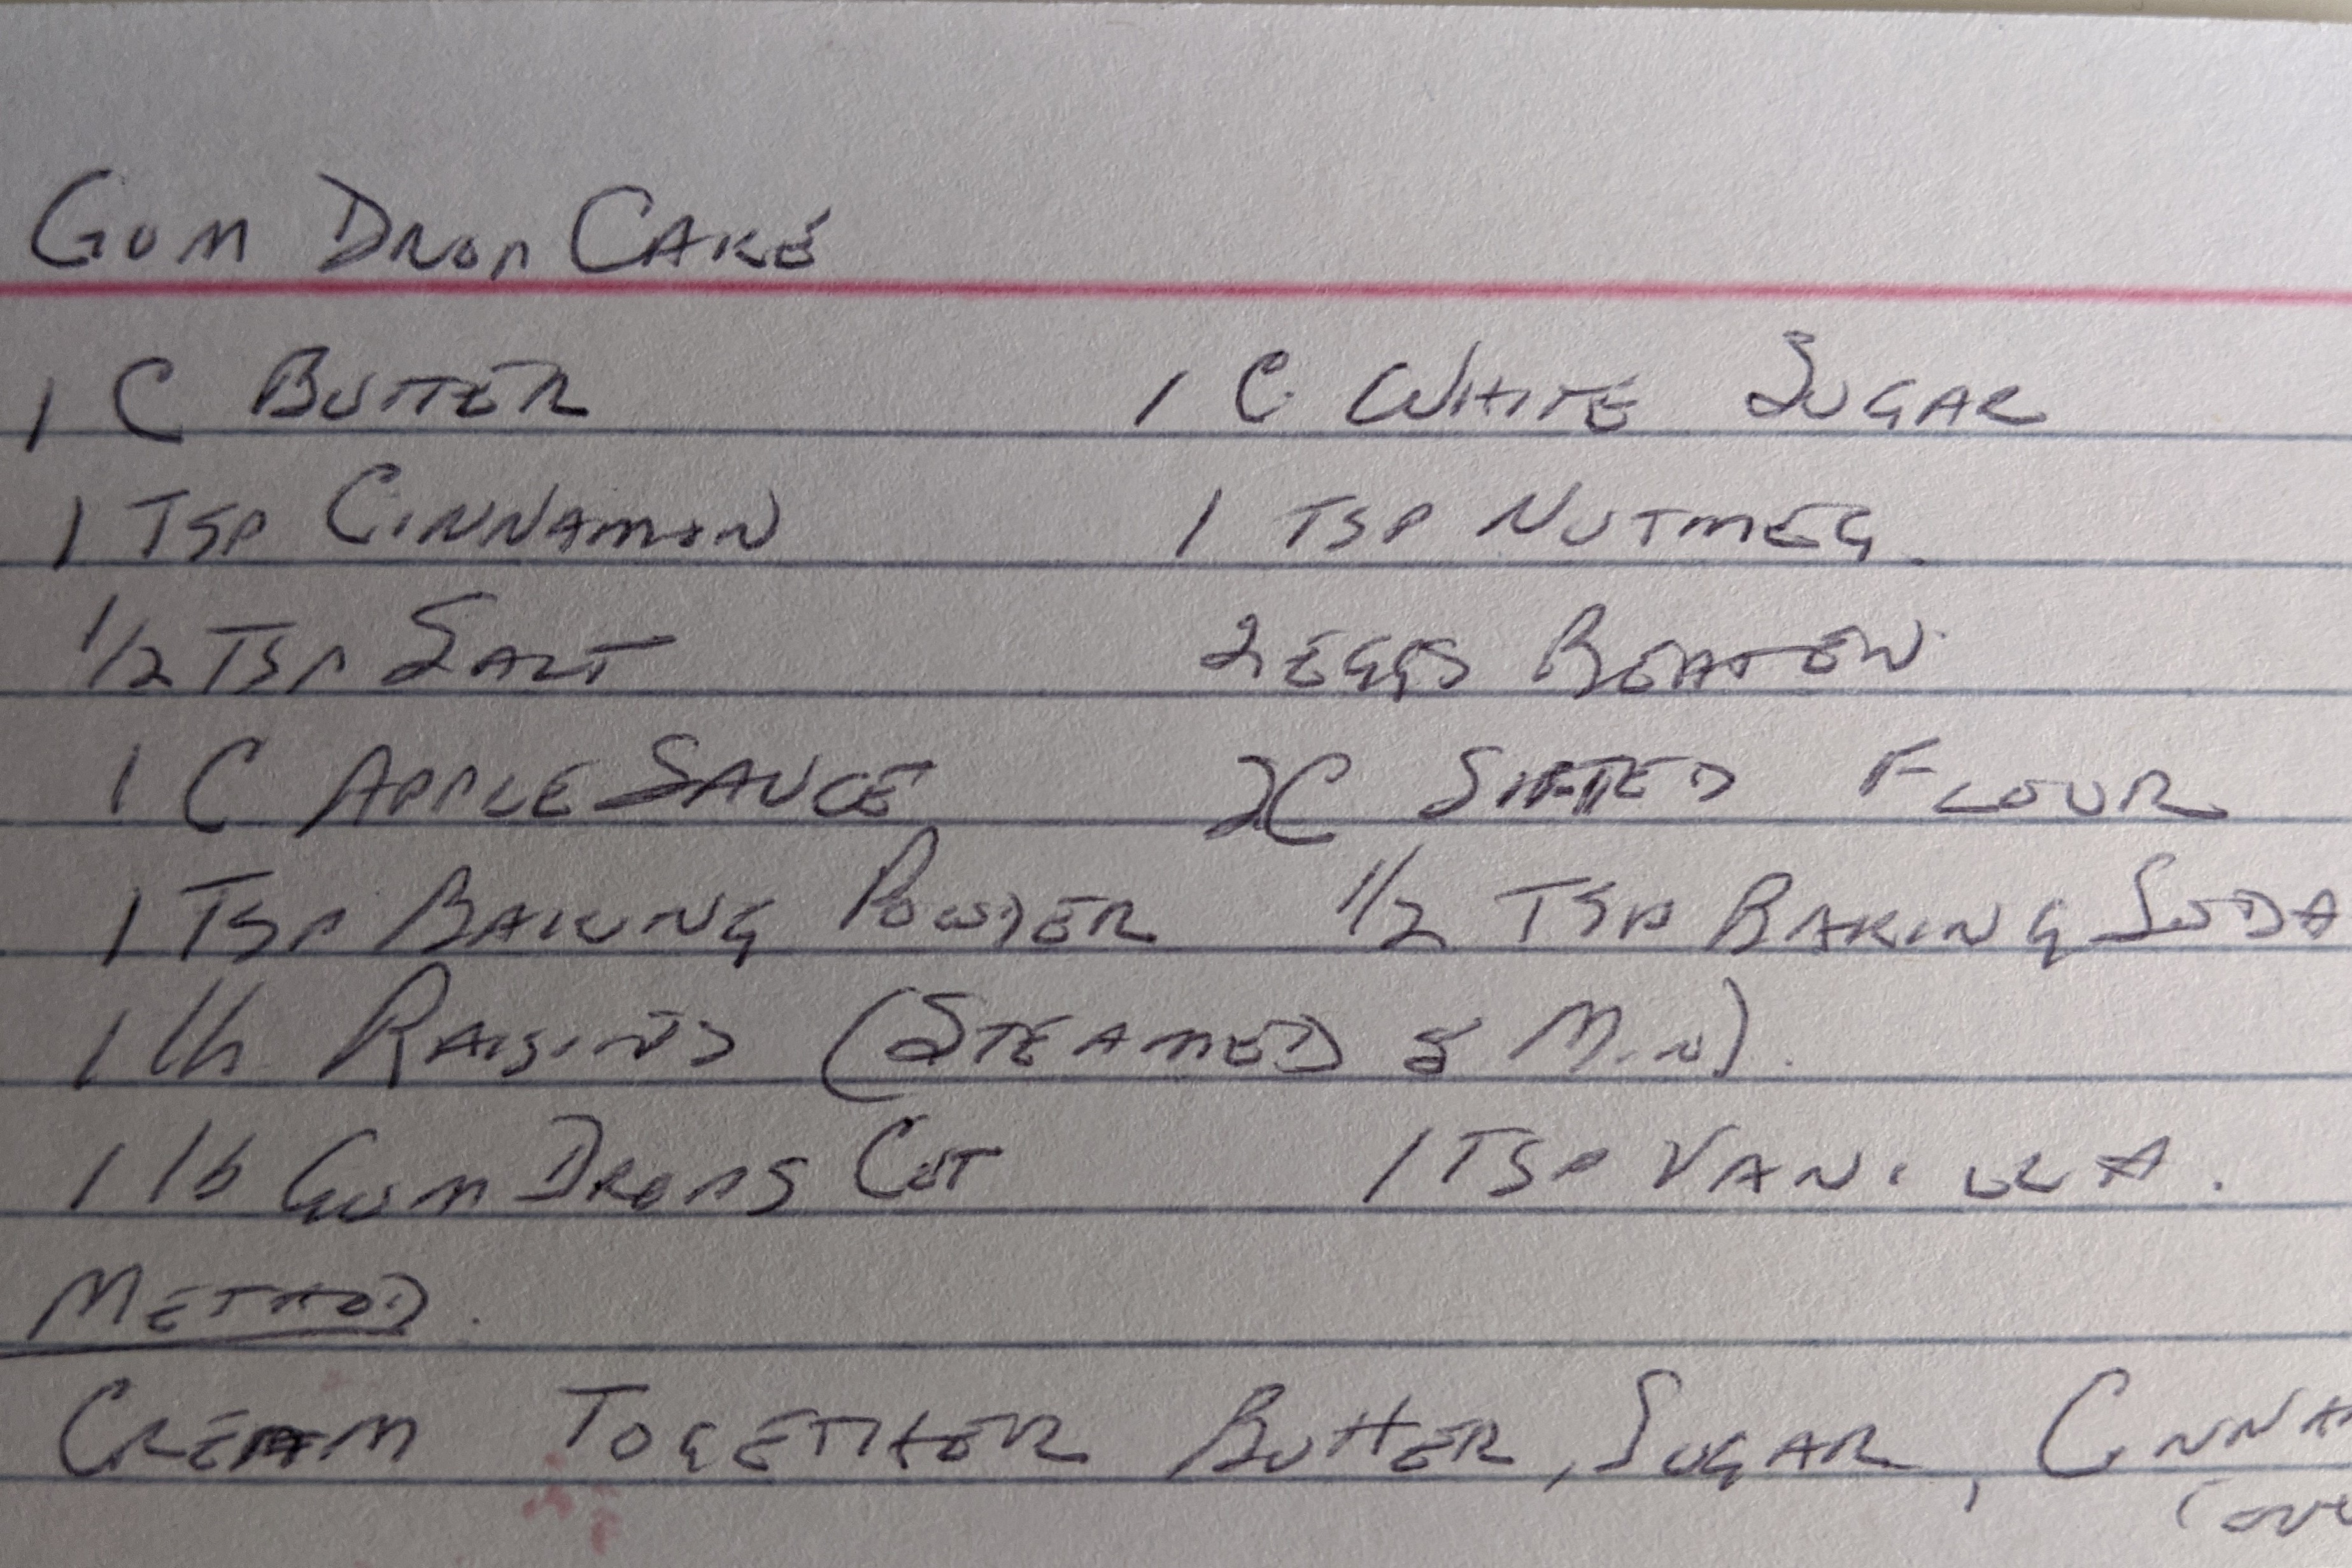 Gum Drop Cake
1 C Butter 1 C White Sugar
1 Tsp Cinnamon 1 Tsp Nutmeg.
1/2 Tsp Salt 2 Eggs Beaten
1 C Apple Sauce 2C Sifted Flour
1 Tsp Baking Powder 1/2 Tsp Baking Soda
1 lb Raisins (Steamed Min).
1 lb Gum Drops Cut 1 Tsp Vanilla.
Method.
Cream Together Butter, Sugar, Cinna
(ove